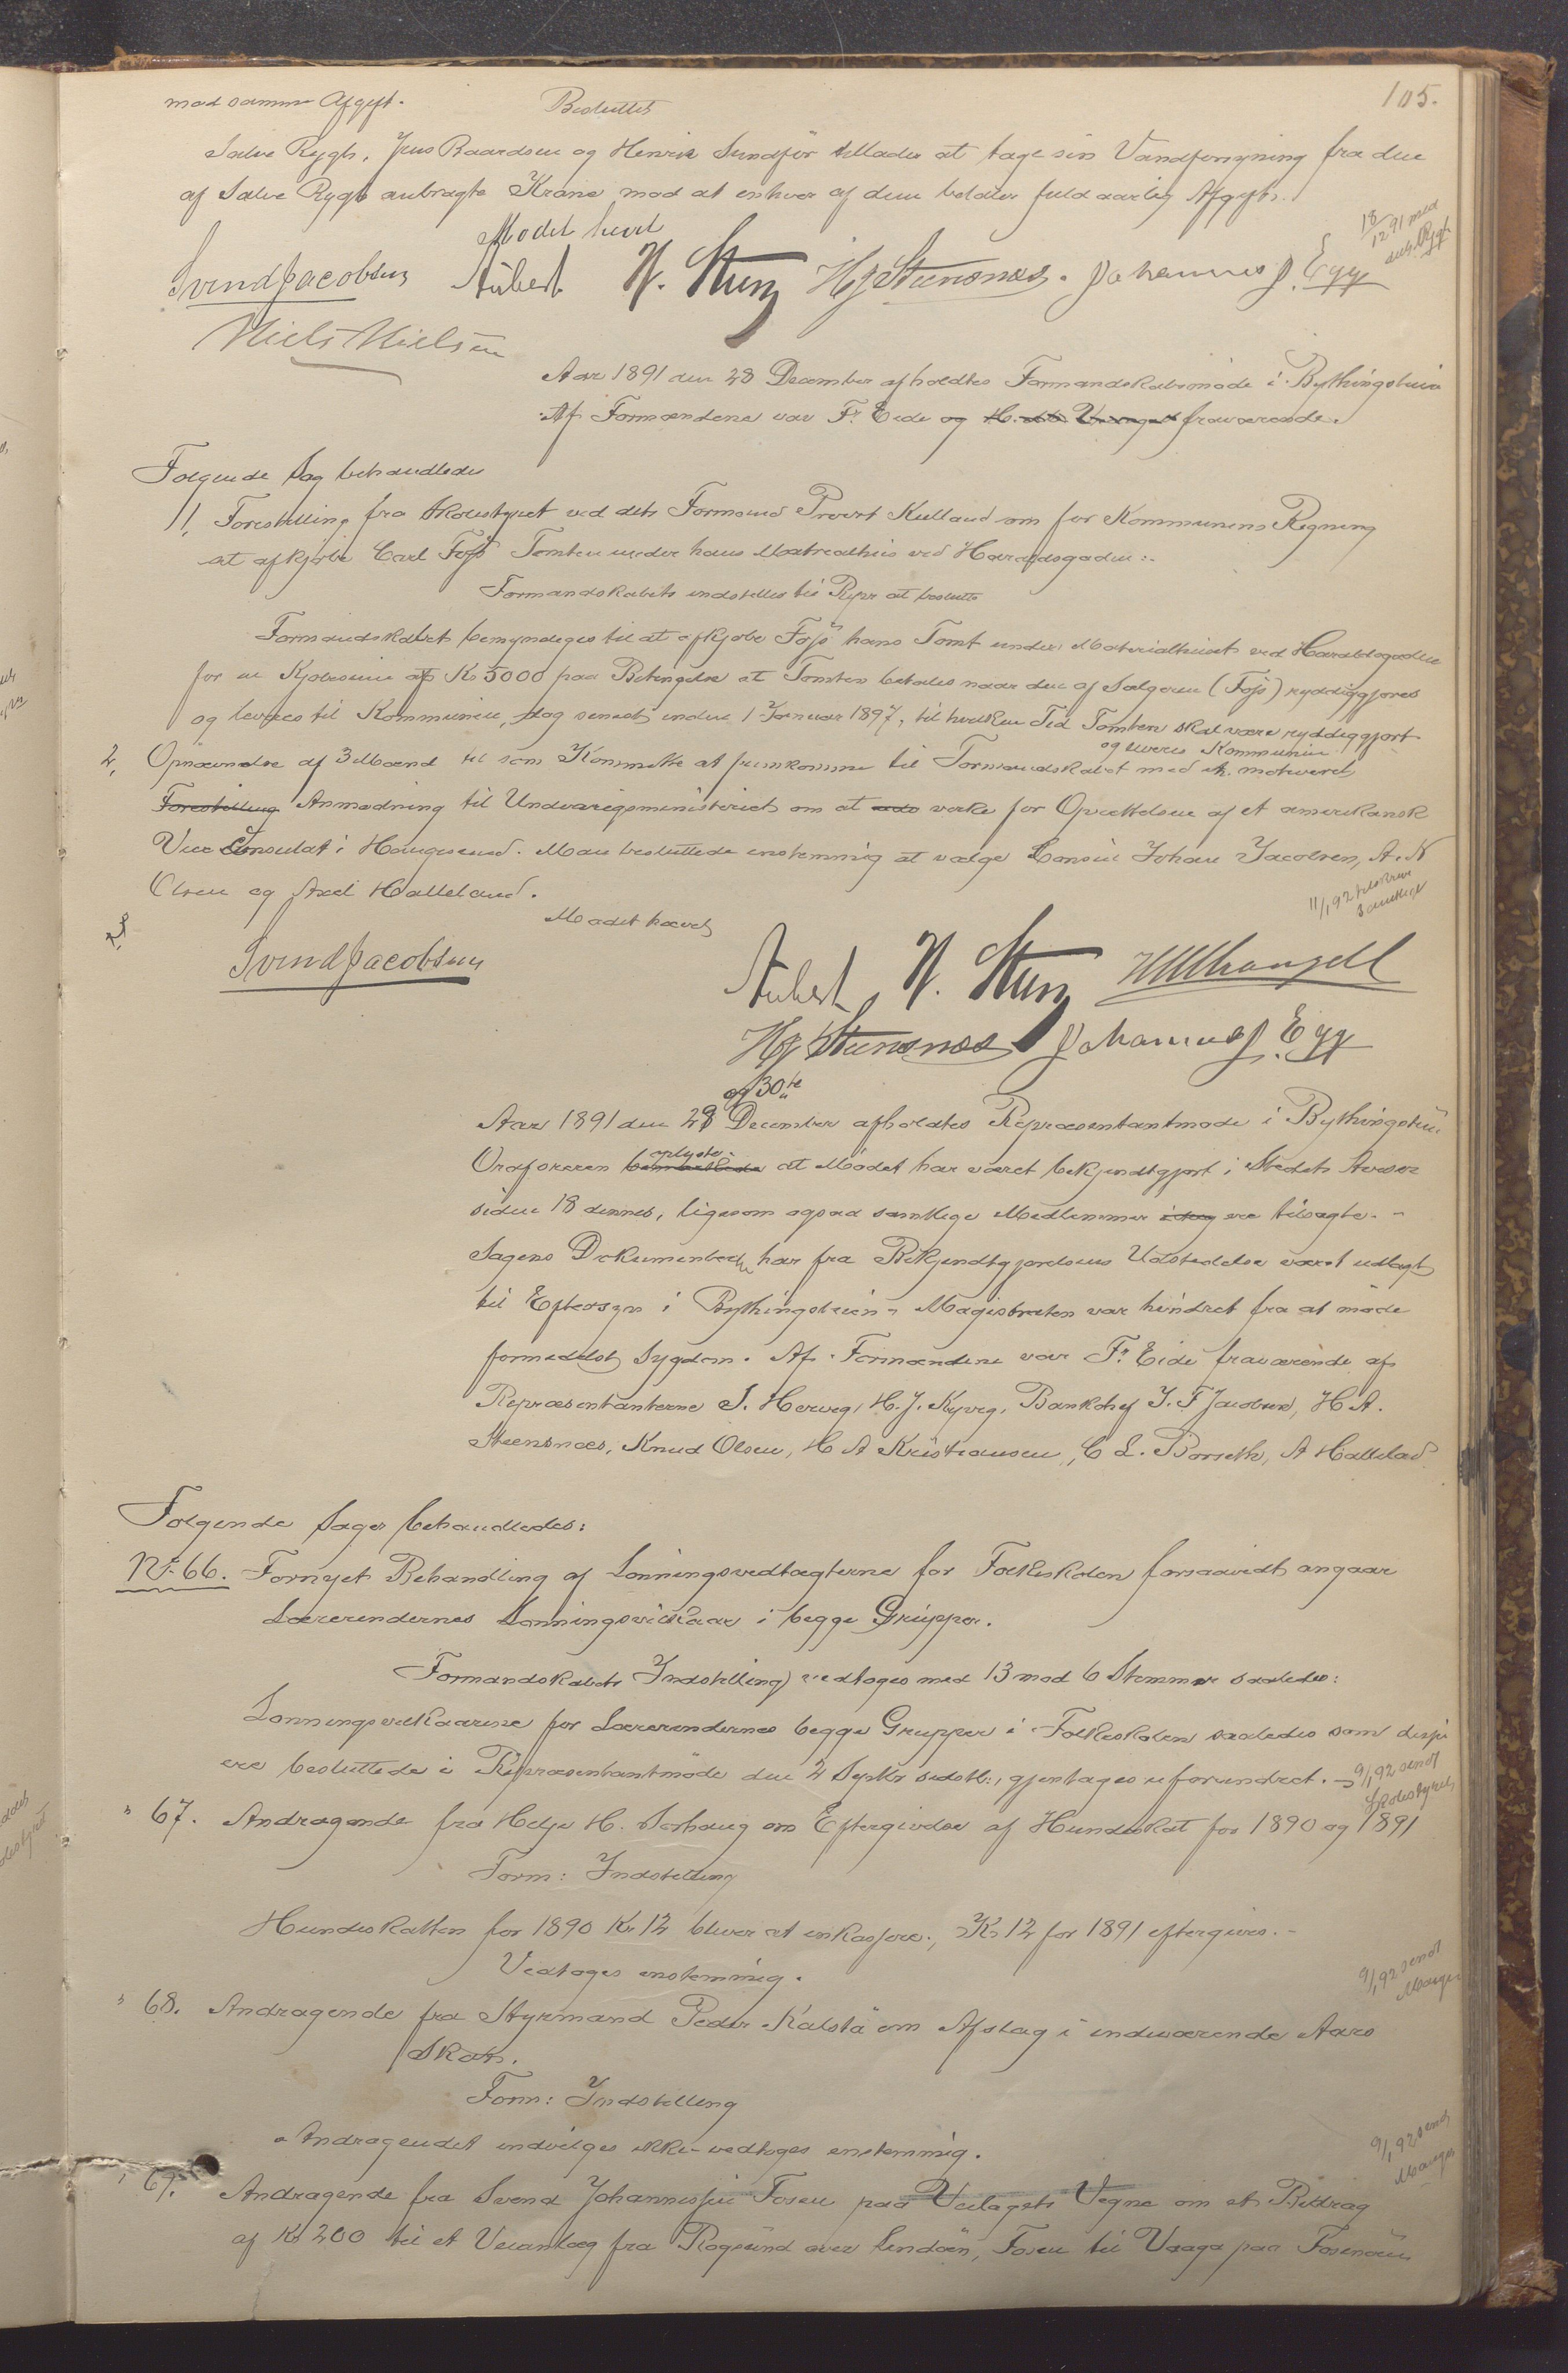 105.
mod samme Afgift.
Besluttet
Salve Rygh, Jens Baardsen og Henrik Sundfør tillades at tage sin Vandforsyning fra den
af Salve Rygh anbragte Krane mod at enhver af dem betaler fuld aarlig Afgift.
Mødet hævet
18/12 91 med
Svend Jacobsen Aubert H. Stenz HJ Steensnæs. Johannes J. Egge
Niels Nielsen
Aar 1891 den 28 December afholdtes Formandskabsmøde i Bythingstuen
Af Formændene var Fr. Eide og fraværende.
Følgende Sag behandledes
1, Forestilling fra Skolestyret ved dets Formand Provst Kielland om for Kommunens Regning
at afkjøbe Carl Føss Tomten under hans Matrealhus ved Haraldsgaden:-
Formandskabets indstilles til Repr at beslutte
Formandskabet bemyndiges til at afkjøbe Føss hans Tomt under Materialhuset ved Haraldsgaden
for en Kjøbesum af Kr 5000 paa Betingelse at Tomten betales naar den af Sælgeren (Føss) ryddiggjøres
og leveres til Kommunen, dog senest inden 1 Januar 1897, til hvilken Tid Tomten skal være ryddiggjort
og leveres Kommunen
2, Opnævnelse af 3 Mænd til som Kommitte at fremkomme til Formandskabet med en motiveret
Forestilling Anmodning til Undenrigsministeriet om at virke for Oprettelsen af et amerikansk
Vice Consulat i Haugesund. Man besluttede enstemmig at vælge Consul Johan Jacobsen, A. N
Olsen og Axel Halleland.
11/1 92 tilskreve samtlige
Mødet hævet
Svend Jacobsen
Aubert H. Stenz HM Wrangell
HJ Steensnæs Johannes J. Egge
og 30te
Aar 1891 den 29 December afholdtes Repræsentantmøde i Bythingstuen
oplyste
Ordføreren bemærkede at Mødet har været bekjendtgjort i Stedets Aviser
siden 18 dennes, ligesom ogsaa samtlige Medlemmer idag ere tilsagte.-
Sagens Dokumenter har fra Bekjendtgjørelsens Udstedelse været udlagt
til Eftersyn i Bythingstuen - Magistraten var hindret fra at møde
formedelst Sygdom. Af Formændene var Fr. Eide fraværende af
Repræsentanterne S. Hervig, H. J. Kyvig, Bankchef J. F Jacobsen, H A.
Steensnæs, Knud Olsen, H A Kristiansen, C L. Borseth, A Hallelad
Følgende Sager behandledes:
No 66. Fornyet Behandling af Lønningsvedtægterne for Folkeskolen forsaavidt angaar
Lærerindernes Lønningsvilkaar i begge Grupper.
Formandskabets Indstilling vedtages med 13 mod 6 Stemmer saaledes:
Lønningsvilkaarene for Lærerindernes begge Grupper i Folkeskolen saaledes som disse
ere besluttede i Repræsentantmøde den 2 Septbr sidstl:, gjentages uforandret.
9/1 92 sendt Skolestyret
" 67. Andragende fra Helje H. Sørhaug om Eftergivelse af Hundeskat for 1890 og 1891
Form: Indstilling
Hundeskatten for 1890 Kr 12 bliver at inkassere, Kr 12 for 1891 eftergives.-
Vedtages enstemmig.
9/1 92 sendt
" 68. Andragende fra Styrmand Peder Kalstø om Afslag i indeværende Aars
Skat.
Form: Indstilling
Andragendet indvilges ikke - vedtages enstemmig.
9/1 92 sendt
" 69. Andragende fra Svend Johannessen Fosen paa Veilagets Vegne om et Bidrag
af Kr 200 til et Veianlæg fra Røgsund over Lindøen, Fosen til Vaaga paa Fosenøen